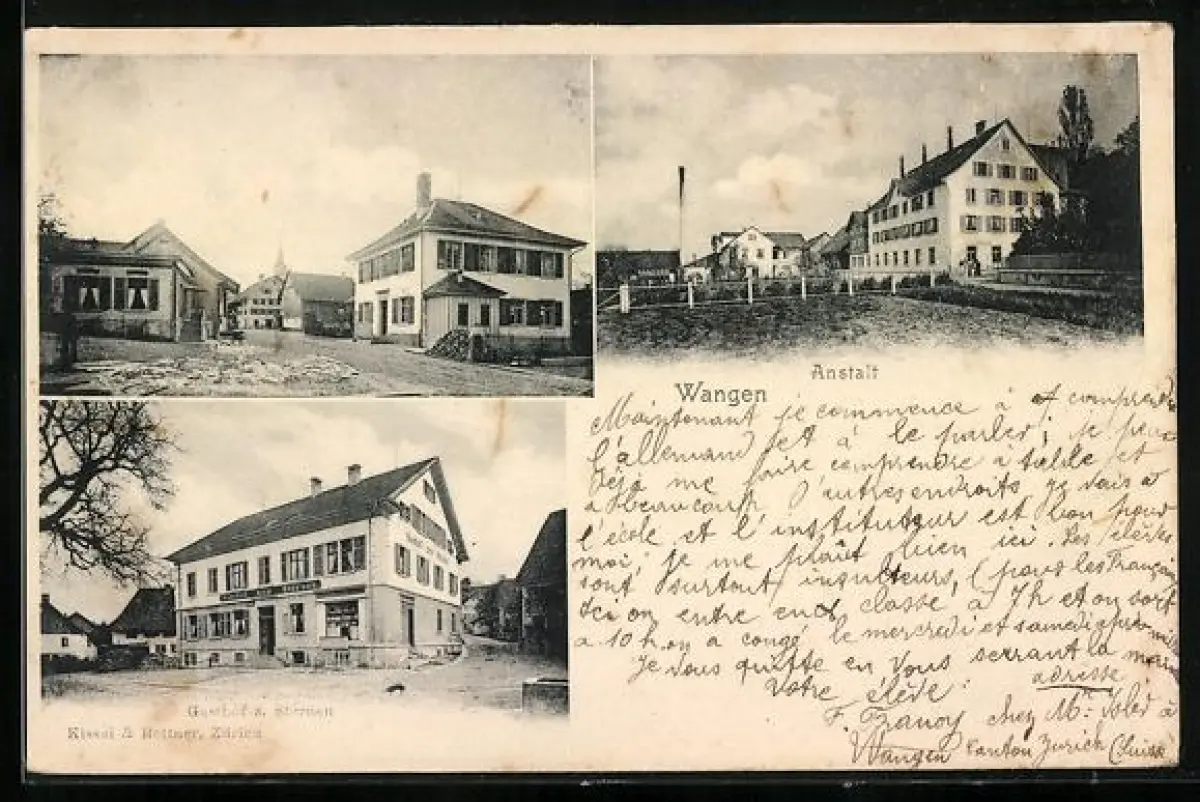 Anstalt
Wangen
Maintenant je commence à comprendre
l'allemand et à le parler; je peux
déjà me faire comprendre à table et
à beaucoup d'autres endroits je vais à
l'école et l'instituteur est bon pour
moi; je me plaît bien ici. Les élèves
sont surtout insulteurs, (pour les Français
Ici on entre en classe à 7h et on sort
à 10 h, on a congé le mercredi et samedi après-midi
Je vous quitte en vous serrant la main
Votre élève: adresse
F. chez Mr à
Wangen Kanton Zurich (Suisse
Gasthof z. Sternen
Kissel & Zürich